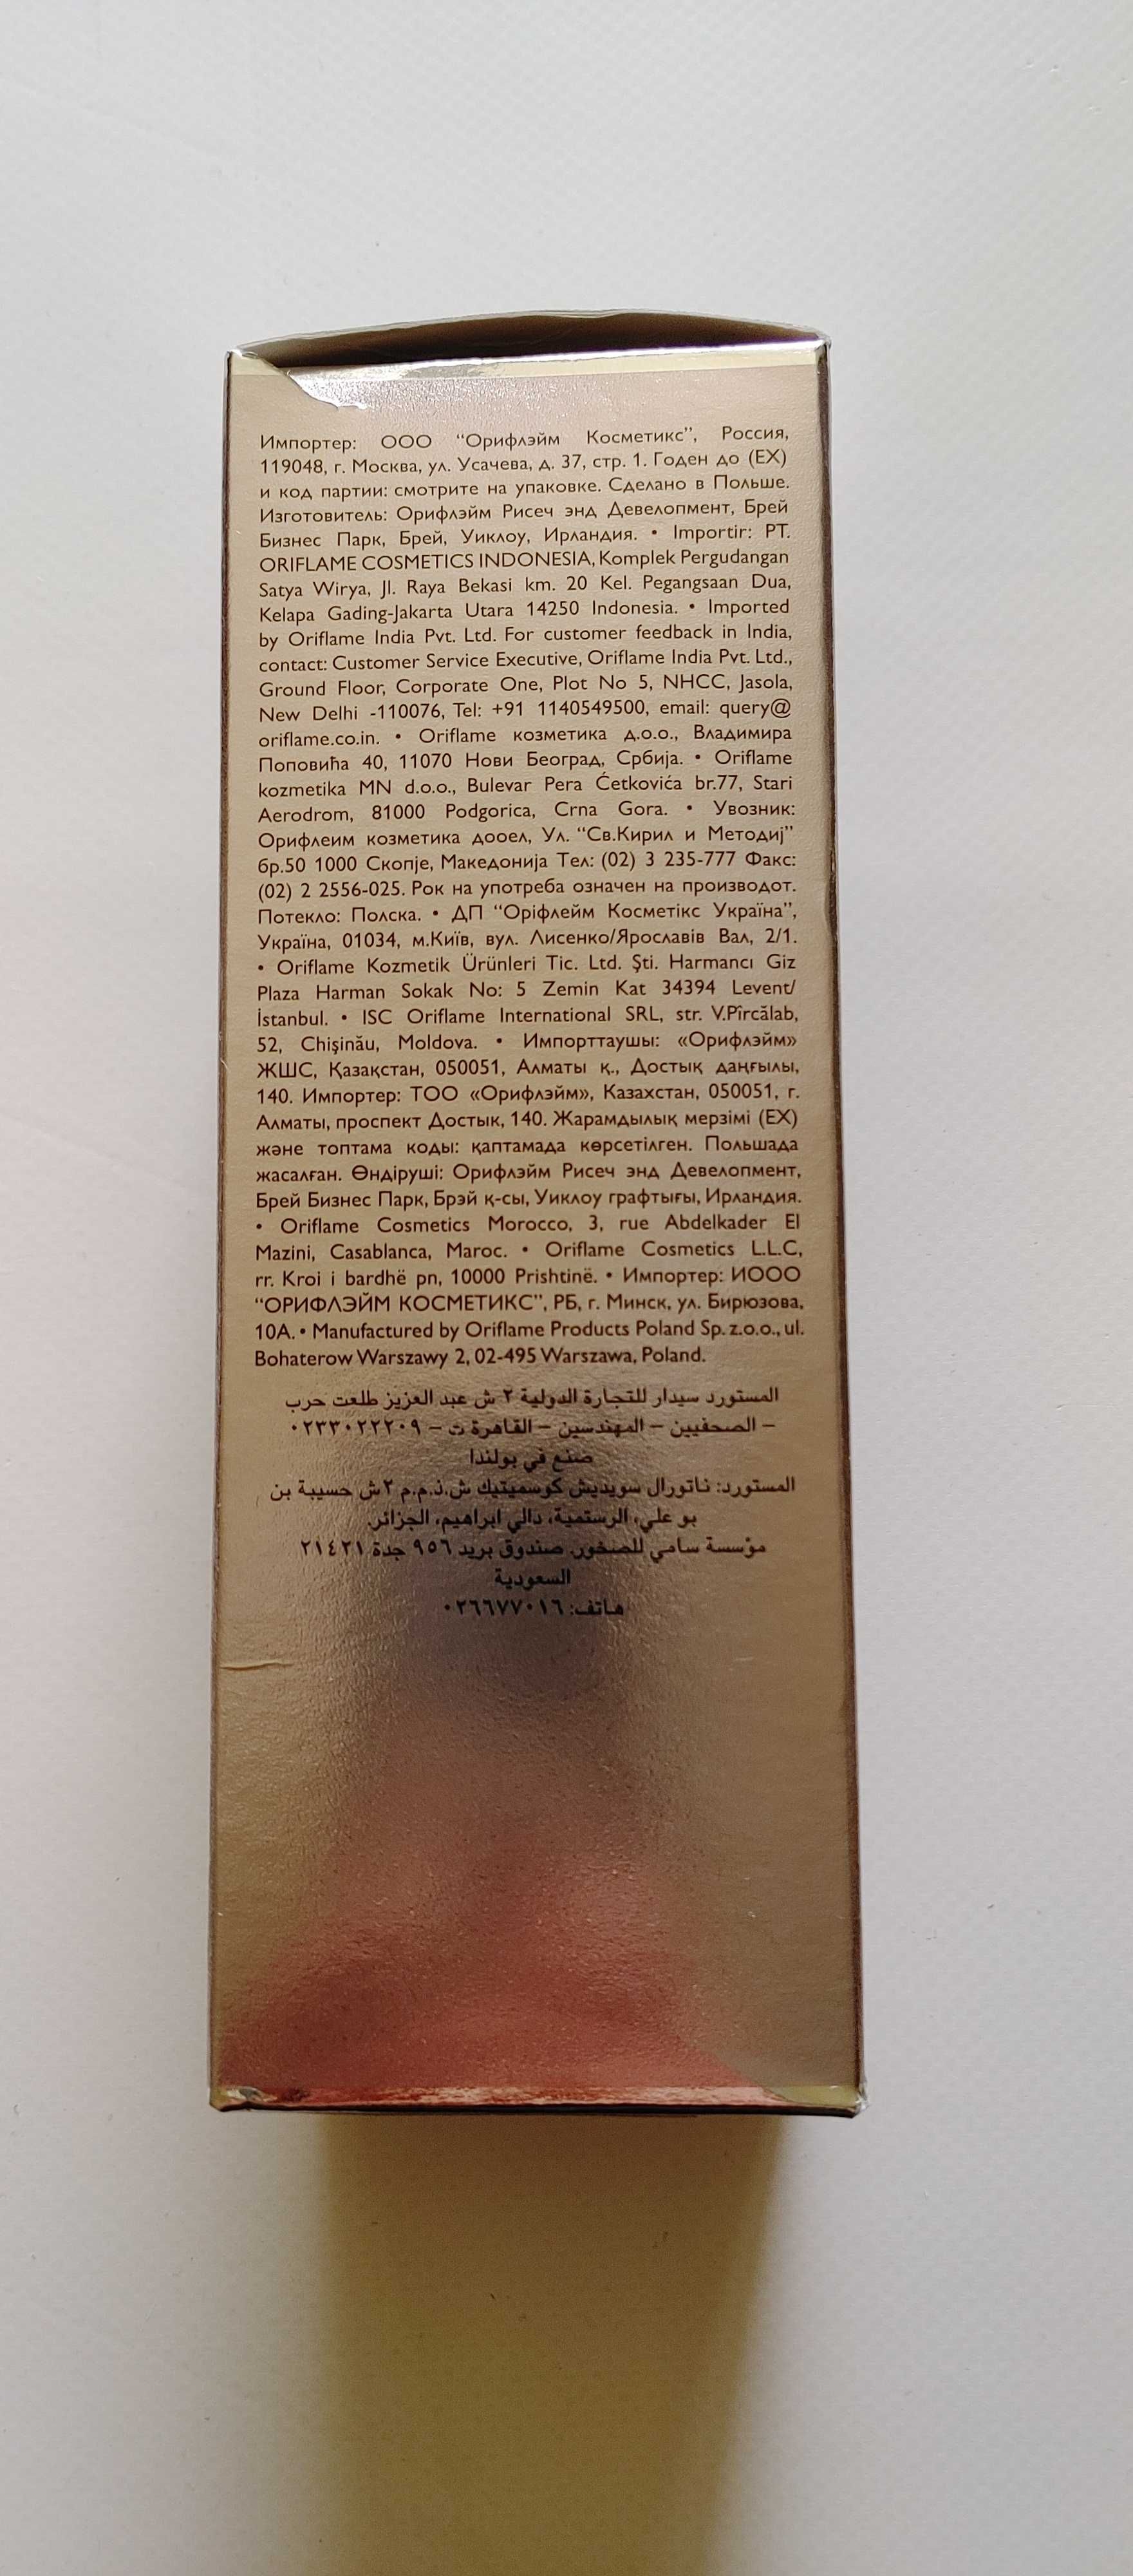 Импортер: ООО “Орифлэйм Косметикс”, Россия,
119048, г. Москва, ул. Усачева, д. 37, стр. 1. Годен до (EX)
и код партии: смотрите на упаковке. Сделано в Польше.
Изготовитель: Орифлэйм Рисеч энд Девелопмент, Брей
Бизнес Парк, Брей, Уиклоу, Ирландия. • Importir: PT.
ORIFLAME COSMETICS INDONESIA, Komplek Pergudangan
Satya Wirya, Jl. Raya Bekasi km. 20 Kel. Pegangsaan Dua,
Kelapa Gading-Jakarta Utara 14250 Indonesia. • Imported
by Oriflame India Pvt. Ltd. For customer feedback in India,
contact: Customer Service Executive, Oriflame India Pvt. Ltd.,
Ground Floor, Corporate One, Plot No 5, NHCC, Jasola,
New Delhi -110076, Tel: +91 1140549500, email: query@
oriflame.co.in. • Oriflame козметика д.о.о., Владимира
Поповића 40, 11070 Нови Београд, Србија. • Oriflame
kozmetika MN d.o.o., Bulevar Pera Ćetkovića br.77, Stari
Aerodrom, 81000 Podgorica, Crna Gora. • Увозник:
Орифлеим козметика дооел, Ул. “Св.Кирил и Методиј”
бр.50 1000 Скопје, Македонија Тел: (02) 3 235-777 Факс:
(02) 2 2556-025. Рок на употреба означен на производот.
Потекло: Полска. • ДП “Оріфлейм Косметікс Україна”,
Україна, 01034, м.Київ, вул. Лисенко/Ярославів Вал, 2/1.
• Oriflame Kozmetik Ürünleri Tic. Ltd. Şti. Harmancı Giz
Plaza Harman Sokak No: 5 Zemin Kat 34394 Levent/
İstanbul. • ISC Oriflame International SRL, str. V.Pîrcălab,
52, Chişinău, Moldova. • Импорттаушы: «Орифлэйм»
ЖШС, Қазақстан, 050051, Алматы қ., Достық даңғылы,
140. Импортер: ТОО «Орифлэйм», Казахстан, 050051, г.
Алматы, проспект Достык, 140. Жарамдылық мерзімі (EX)
және топтама коды: қаптамада көрсетілген. Польшада
жасалған. Өндіруші: Орифлэйм Рисеч энд Девелопмент,
Брей Бизнес Парк, Брэй қ-сы, Уиклоу графтығы, Ирландия.
• Oriflame Cosmetics Morocco, 3, rue Abdelkader El
Mazini, Casablanca, Maroc. • Oriflame Cosmetics L.L.C,
rr. Kroi i bardhë pn, 10000 Prishtinë. • Импортер: ИООО
“ОРИФЛЭЙМ КОСМЕТИКС”, РБ, г. Минск, ул. Бирюзова,
10А. • Manufactured by Oriflame Products Poland Sp. z.o.o., ul.
Bohaterow Warszawy 2, 02-495 Warszawa, Poland.
المستورد سيدار للتجارة الدولية ٢ ش عبد العزيز طلعت حرب
– الصحفيين – المهندسين – القاهرة ت – ٠٢٣٣٠٢٢٢٠٩
صنع في بولندا
المستورد: ناتورال سويديش كوسميتيك ش.ذ.م.م ٢ ش حسيبة بن
بو علي، الرستمية، دالي ابراهيم، الجزائر.
مؤسسة سامي للصخور. صندوق بريد ٩٥٦ جدة ٢١٤٢١
السعودية
هاتف: ٠٢٦٦٧٧٠١٦